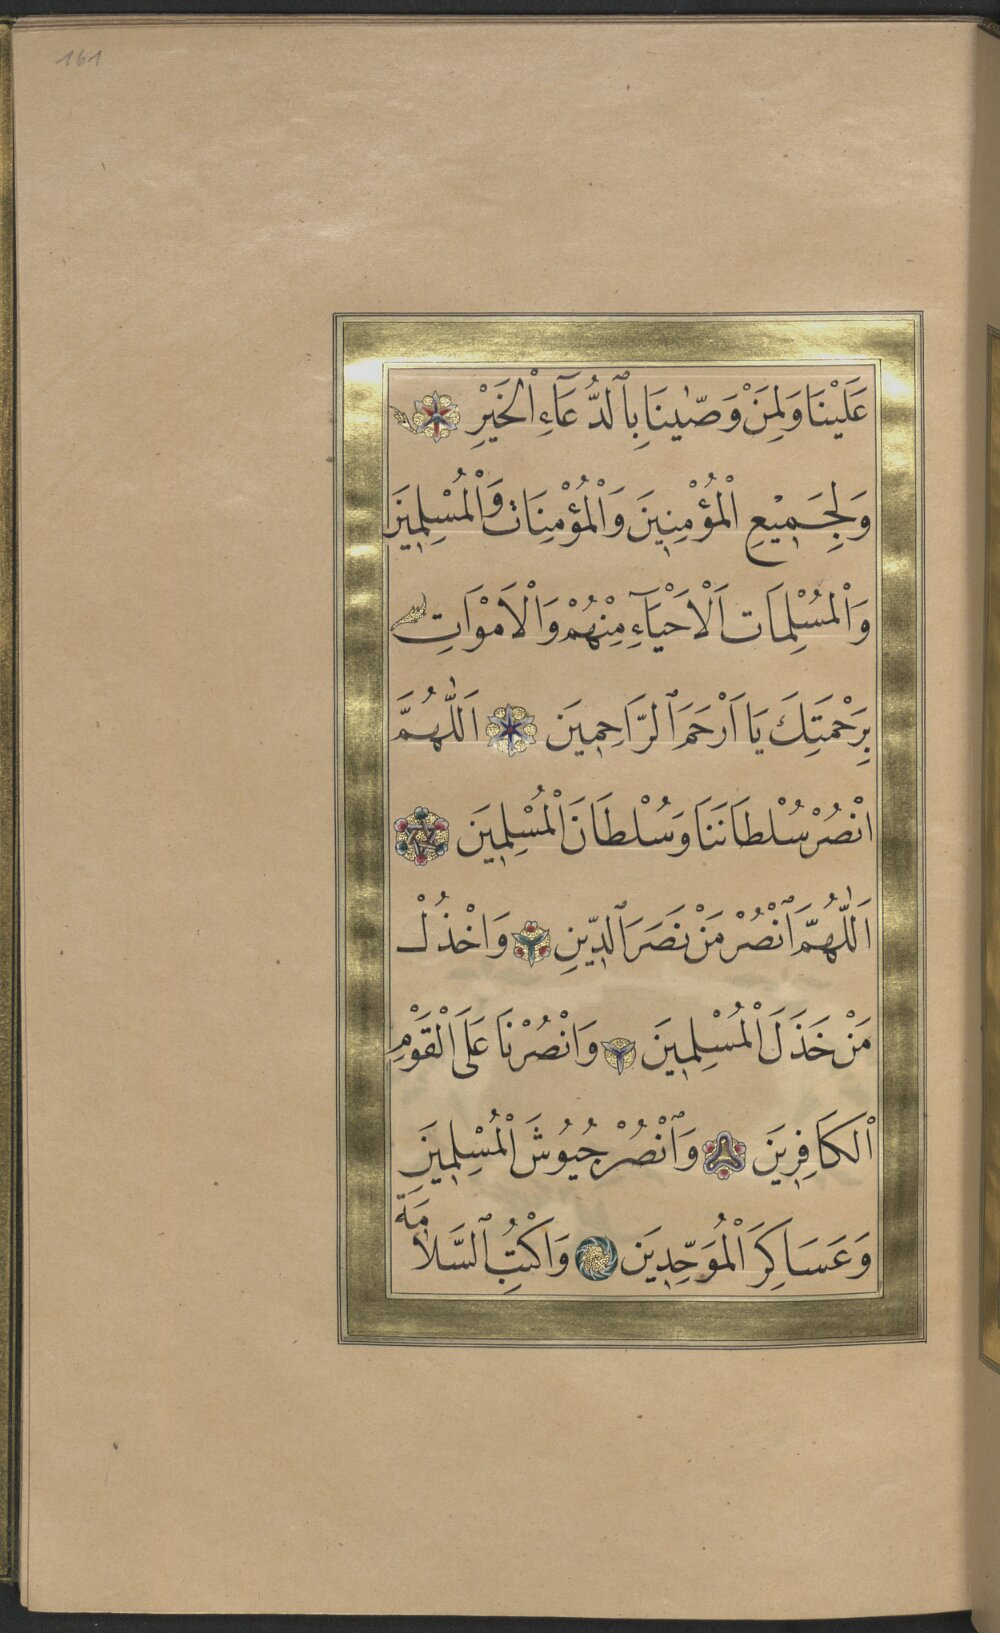 161
عَلَيْنَا وَلِمَنْ وَصّٰينَا بِٱلدُّعَآءِ الْخَيْرِ
وَلِجَمِيْعِ الْمُؤْمِنِينَ وَالْمُؤْمِنَاتِ وَالْمُسْلِمِينَ
وَالْمُسْلِمَاتِ اَلْاَحْيَآءِ مِنْهُمْ وَالْاَمْوَاتِ
بِرَحْمَتِكَ يَا اَرْحَمَ ٱلرَّاحِمِينَ اَللّٰهُمَّ
انْصُرْ سُلْطَانَنَا وَسُلْطَانَ الْمُسْلِمِينَ
اَللّٰهُمَّ ٱنْصُرْ مَنْ نَصَرَ ٱلدِّينِ وَاخْذُلْ
مَنْ خَذَلَ الْمُسْلِمِينَ وَانْصُرْنَا عَلَى الْقَوْمِ
الْكَافِرِينَ وَٱنْصُرْ جُيُوشَ الْمُسْلِمِينَ
وَعَسَاكِرَ الْمُوَحِّدِينَ وَاكْتُبِ ٱلسَّلَامَةَ